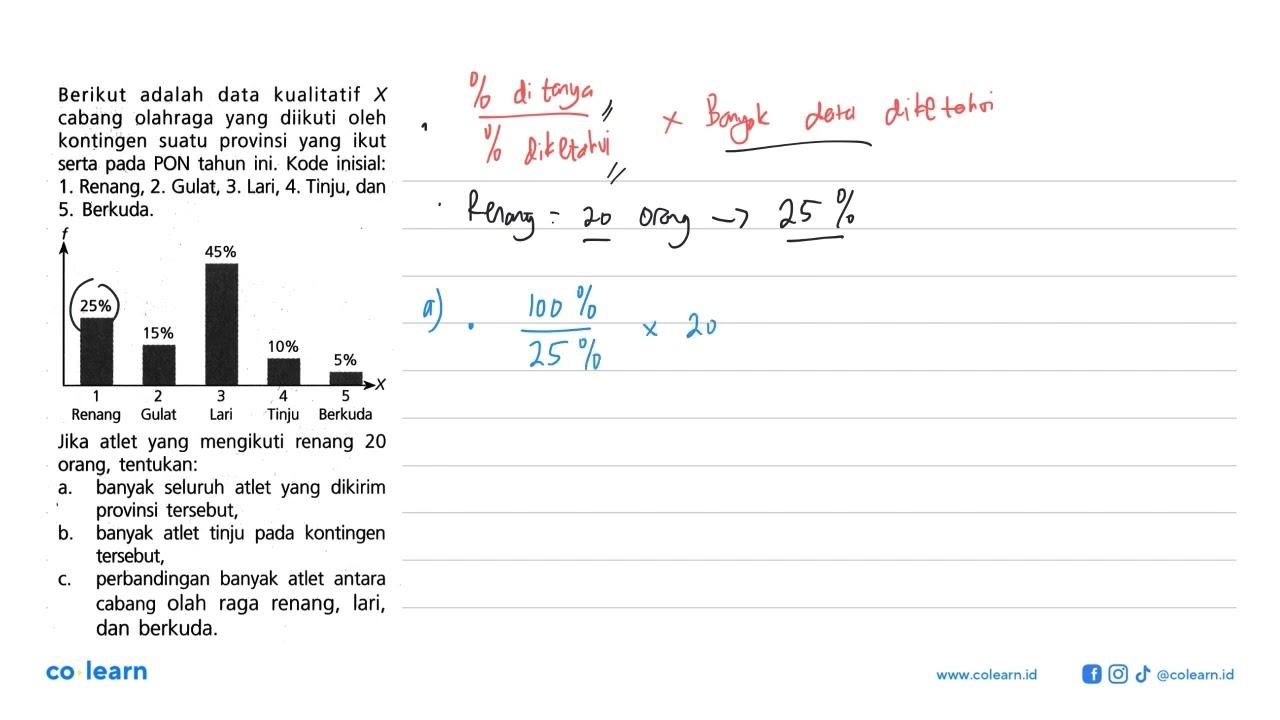 Berikut adalah data kualitatif X
cabang olahraga yang diikuti oleh
kontingen suatu provinsi yang ikut
serta pada PON tahun ini. Kode inisial:
1. Renang, 2. Gulat, 3. Lari, 4. Tinju, dan
5. Berkuda.
f
45%
25%
15%
10%
5%
X
1 2 3 4 5
Renang Gulat Lari Tinju Berkuda
Jika atlet yang mengikuti renang 20
orang, tentukan:
a. banyak seluruh atlet yang dikirim
provinsi tersebut,
b. banyak atlet tinju pada kontingen
tersebut,
c. perbandingan banyak atlet antara
cabang olah raga renang, lari,
dan berkuda.
% ditanya
% diketahui
x Banyak data diketahui
Renang = 20 orang → 25%
a) 100%
25%
x 20
co learn
www.colearn.id
@colearn.id